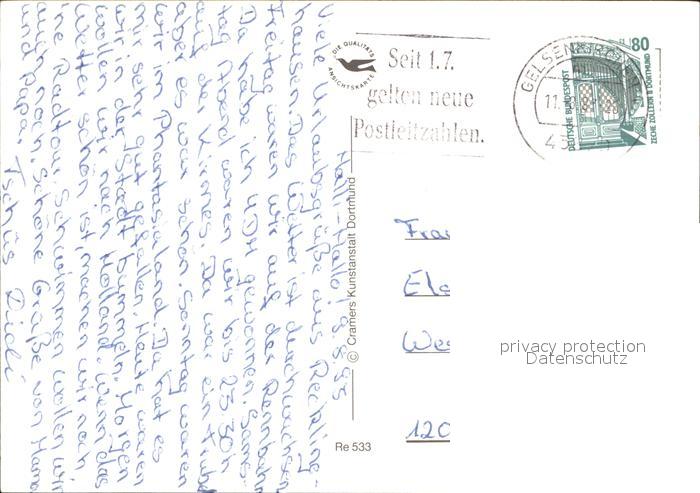 Halli-Hallo! 9.8.93
Viele Urlaubsgrüße aus Reckling-
hause. Das Wetter ist durchwachsen
Freitag waren wir auf der Rennbahn
Da habe ich 4DM gewonnen. Sams-
tag Abend waren wir bis 23.30h
auf der Kirmes. Da war ein Trubel
aber es war schön. Sonntag waren
wir im Phantasialand. Da hat es
mir sehr gut gefallen. Heute waren
wir in der Stadt bummeln. Morgen
wollen wir nach Holland. Wenn das
Wetter schön ist, machen wir noch
ine Radtour. Schwimmen wollen wir
auch noch. Schöne Grüße von Mama
und Papa. Tschüs
© Cramers Kunstanstalt Dortmund
Re 533
DIE QUALITÄTS
ANSICHTSKARTE
Seit 1.7.
gelten neue
Postleitzahlen.
GELSENKIRCHEN
11.
4
80
DEUTSCHE BUNDESPOST
ZECHE ZOLLERN II DORTMUND
Frau
120
privacy protection
Datenschutz